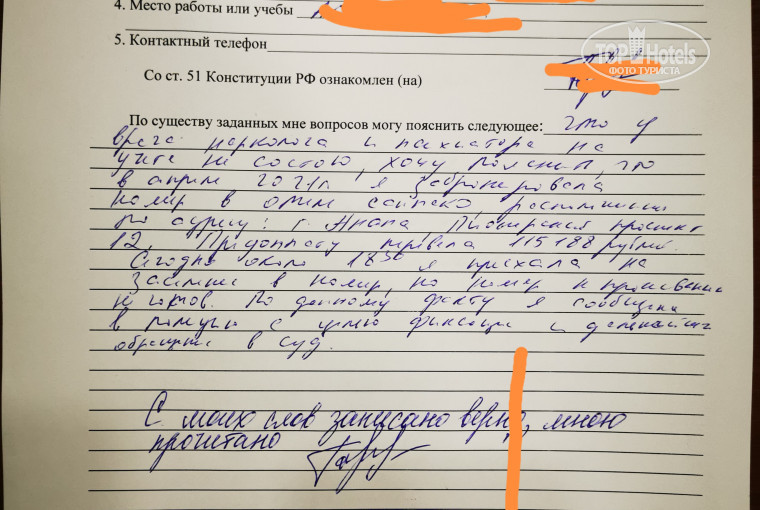 4. Место работы или учебы
TOP Hotels
ФОТО ТУРИСТА
5. Контактный телефон
Со ст. 51 Конституции РФ ознакомлен (на)
По существу заданных мне вопросов могу пояснить следующее: что у
врача нарколога и психиатра на
учете не состою, хочу пояснить, что
в апреле 2021г. я забронировала
номер в отеле
по адресу: г. Анапа, Пионерский проспект
12. Предоплату перевела 115188 рублей.
Сегодня около 18 30 я приехала на
заселение в номер, но номер к проживанию
не готов. По данному факту я сообщила
в полицию с целью фиксации и дальнейшего
обращения в суд.
С моих слов записано верно, мною
прочитано